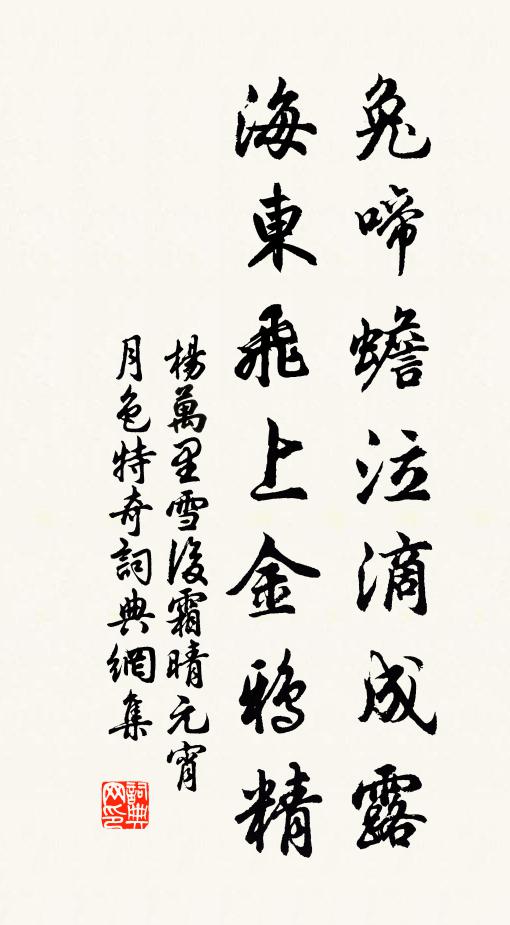 兔啼蟾泣滴成露
海東飛上金鴉精
楊萬里雪後霜晴元宵
月色特奇詞典網集
詞典
网印